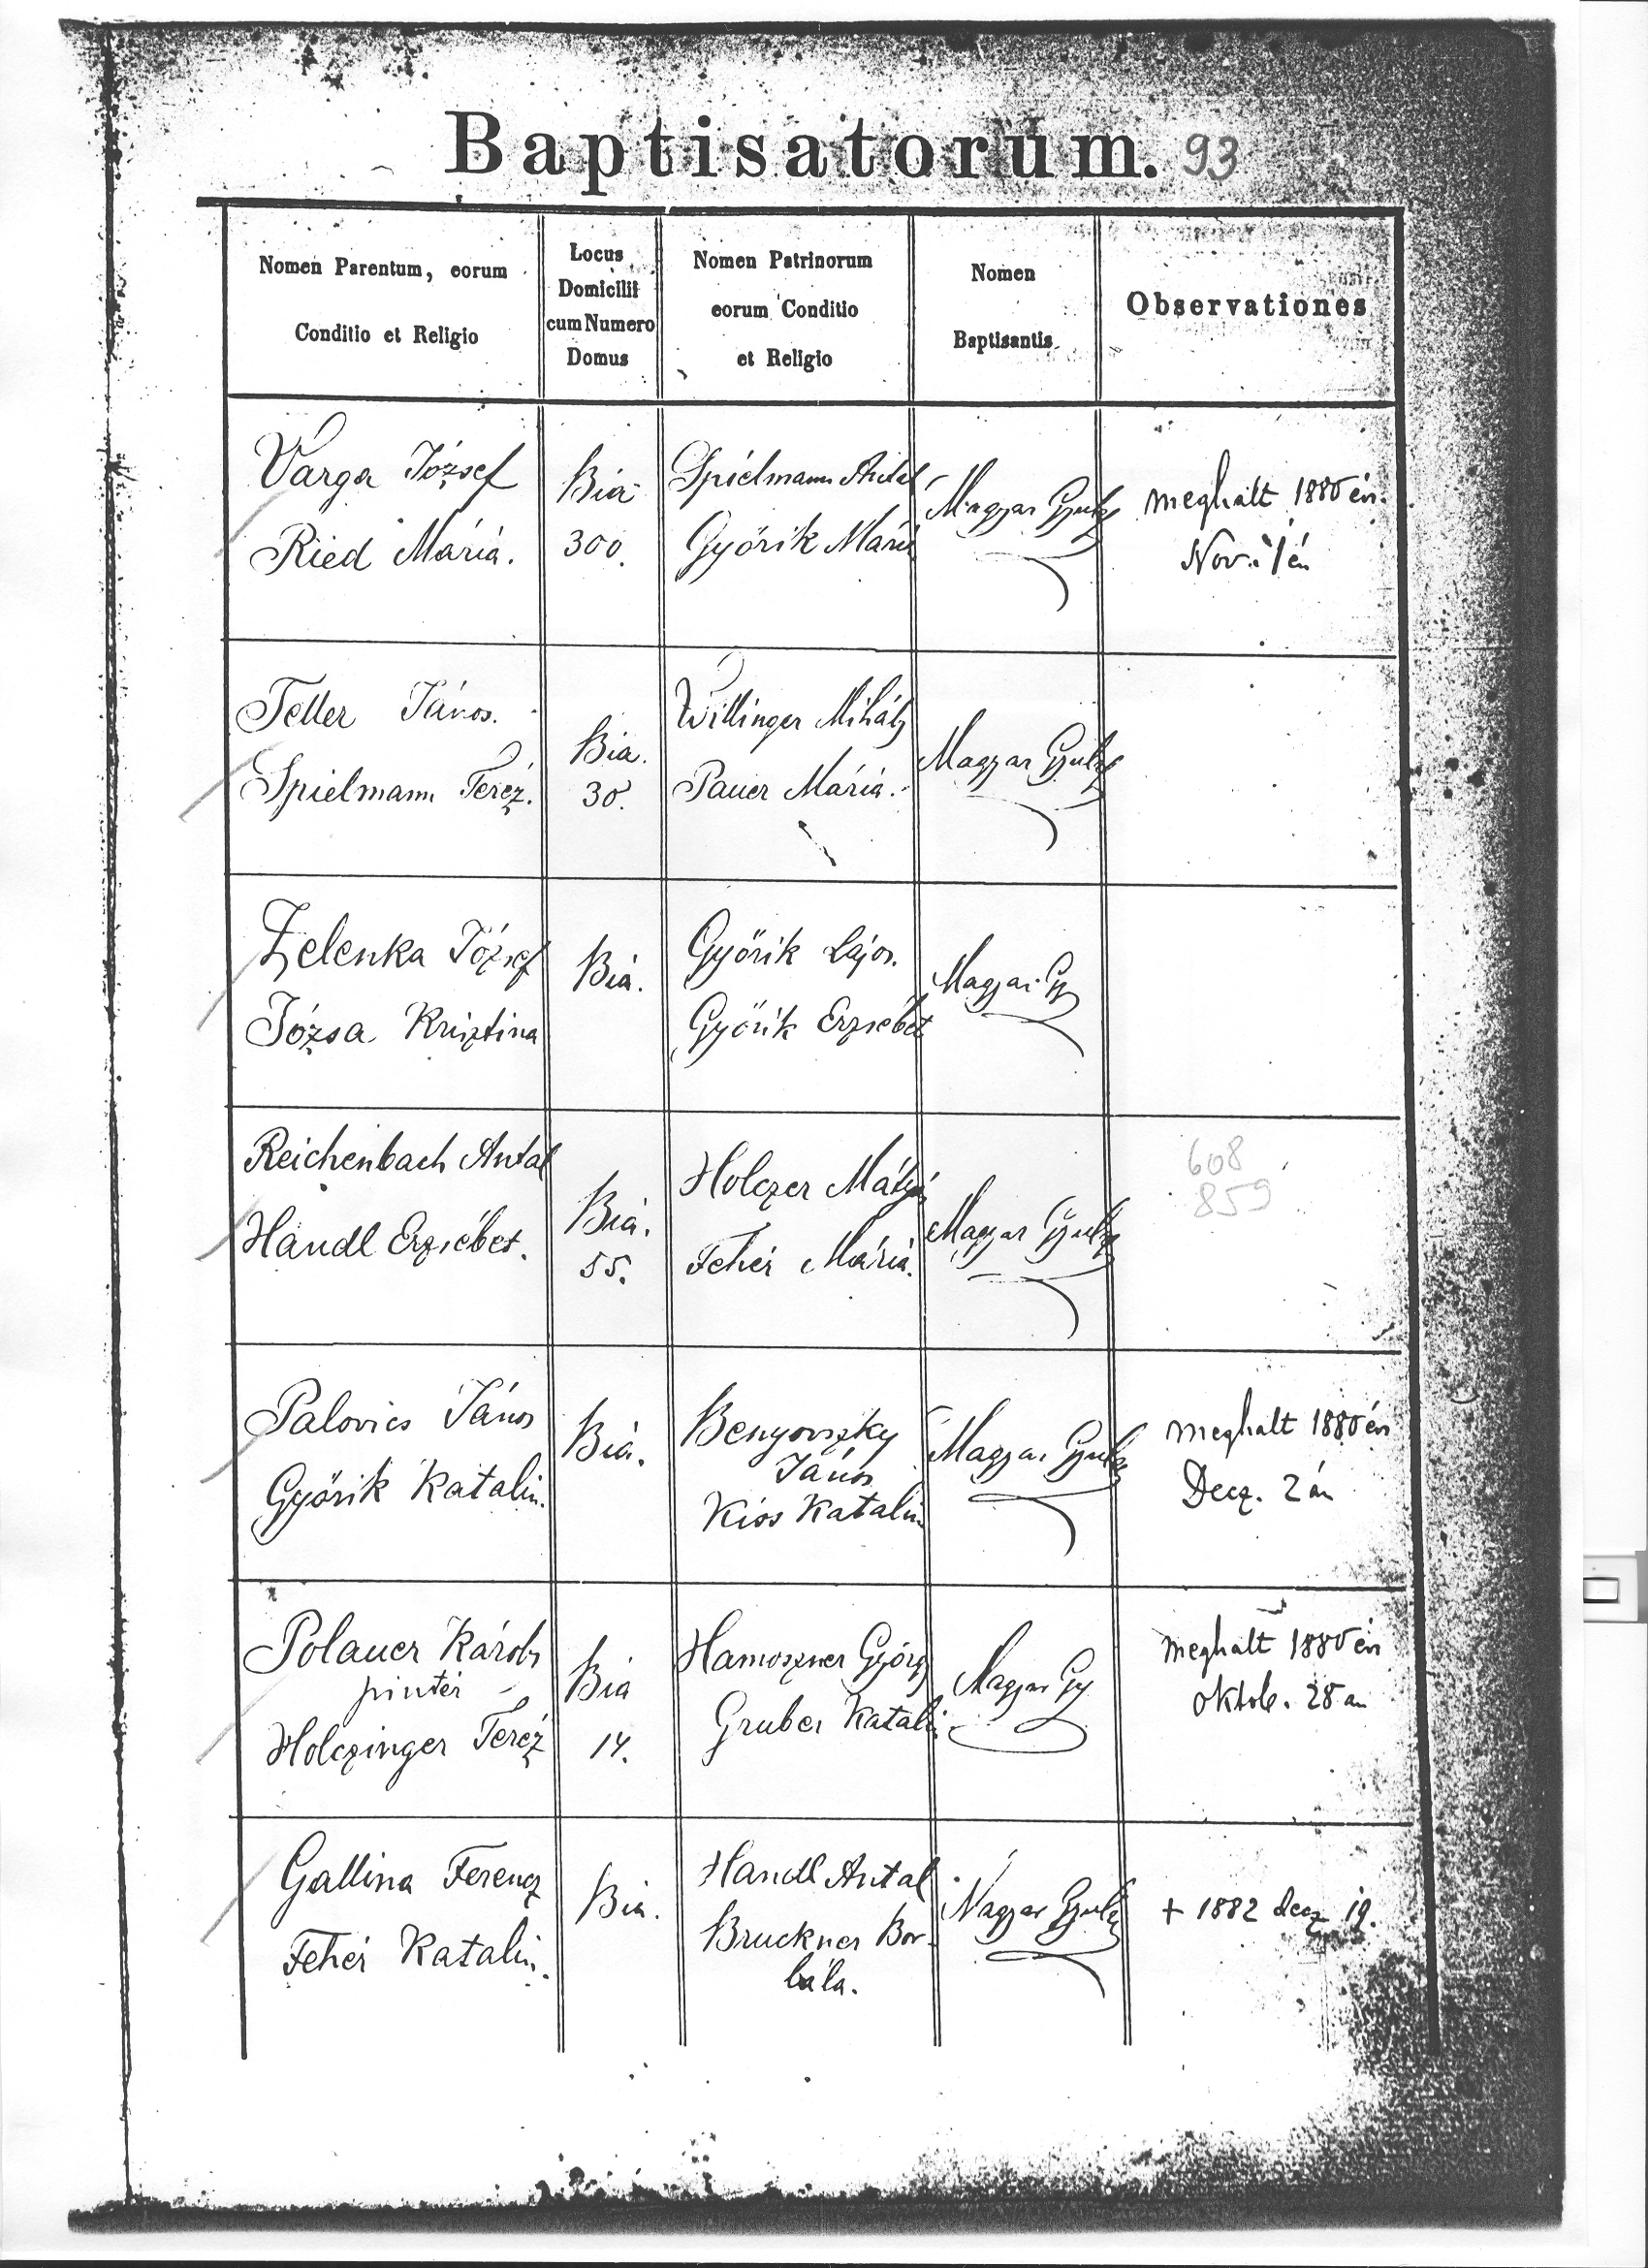 Baptisatorum. 93
Nomen Parentum, eorum
Conditio et Religio
Locus
Domicilii
cum Numero
Domus
Nomen Patrinorum
eorum Conditio
et Religio
Nomen
Baptisantis
Observationes
Varga József
Ried Mária.
Bia
300.
Spielmann Antal
Győrik Mária
Magyar Gyula
meghalt 1880 év.
Nov. 1 én
Teller János.
Spielmann Teréz.
Bia.
30.
Willinger Mihály
Pauer Mária.
Magyar Gyula
Zelenka József
Józsa Krisztina
Bia.
Győrik Lajos.
Győrik Erzsébet
Magyar Gy
Reichenbach Antal
Handl Erzsébet.
Bia.
55.
Holczer Mátyás
Fehér Mária.
Magyar Gyula
608
859
Palovics János
Győrik Katalin.
Bia.
Benyovszky
János
Kios Katalin
Magyar Gyula
meghalt 1880 év
Decz. 2 án
Polauer Károly
pintér
Holczinger Teréz
Bia
14.
Hamoszner György
Gruber Katalin
Magyar Gy
meghalt 1880 év
oktob. 28 an
Gallina Ferencz
Fehér Katalin.
Bia.
Handl Antal
Bruckner Bor-
bála.
Magyar Gyula
+ 1882 decz 19.